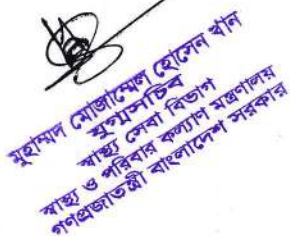 মুহাম্মদ মোজাম্মেল হোসেন খান
যুগ্মসচিব
স্বাস্থ্য সেবা বিভাগ
স্বাস্থ্য ও পরিবার কল্যাণ মন্ত্রণালয়
গণপ্রজাতন্ত্রী বাংলাদেশ সরকার